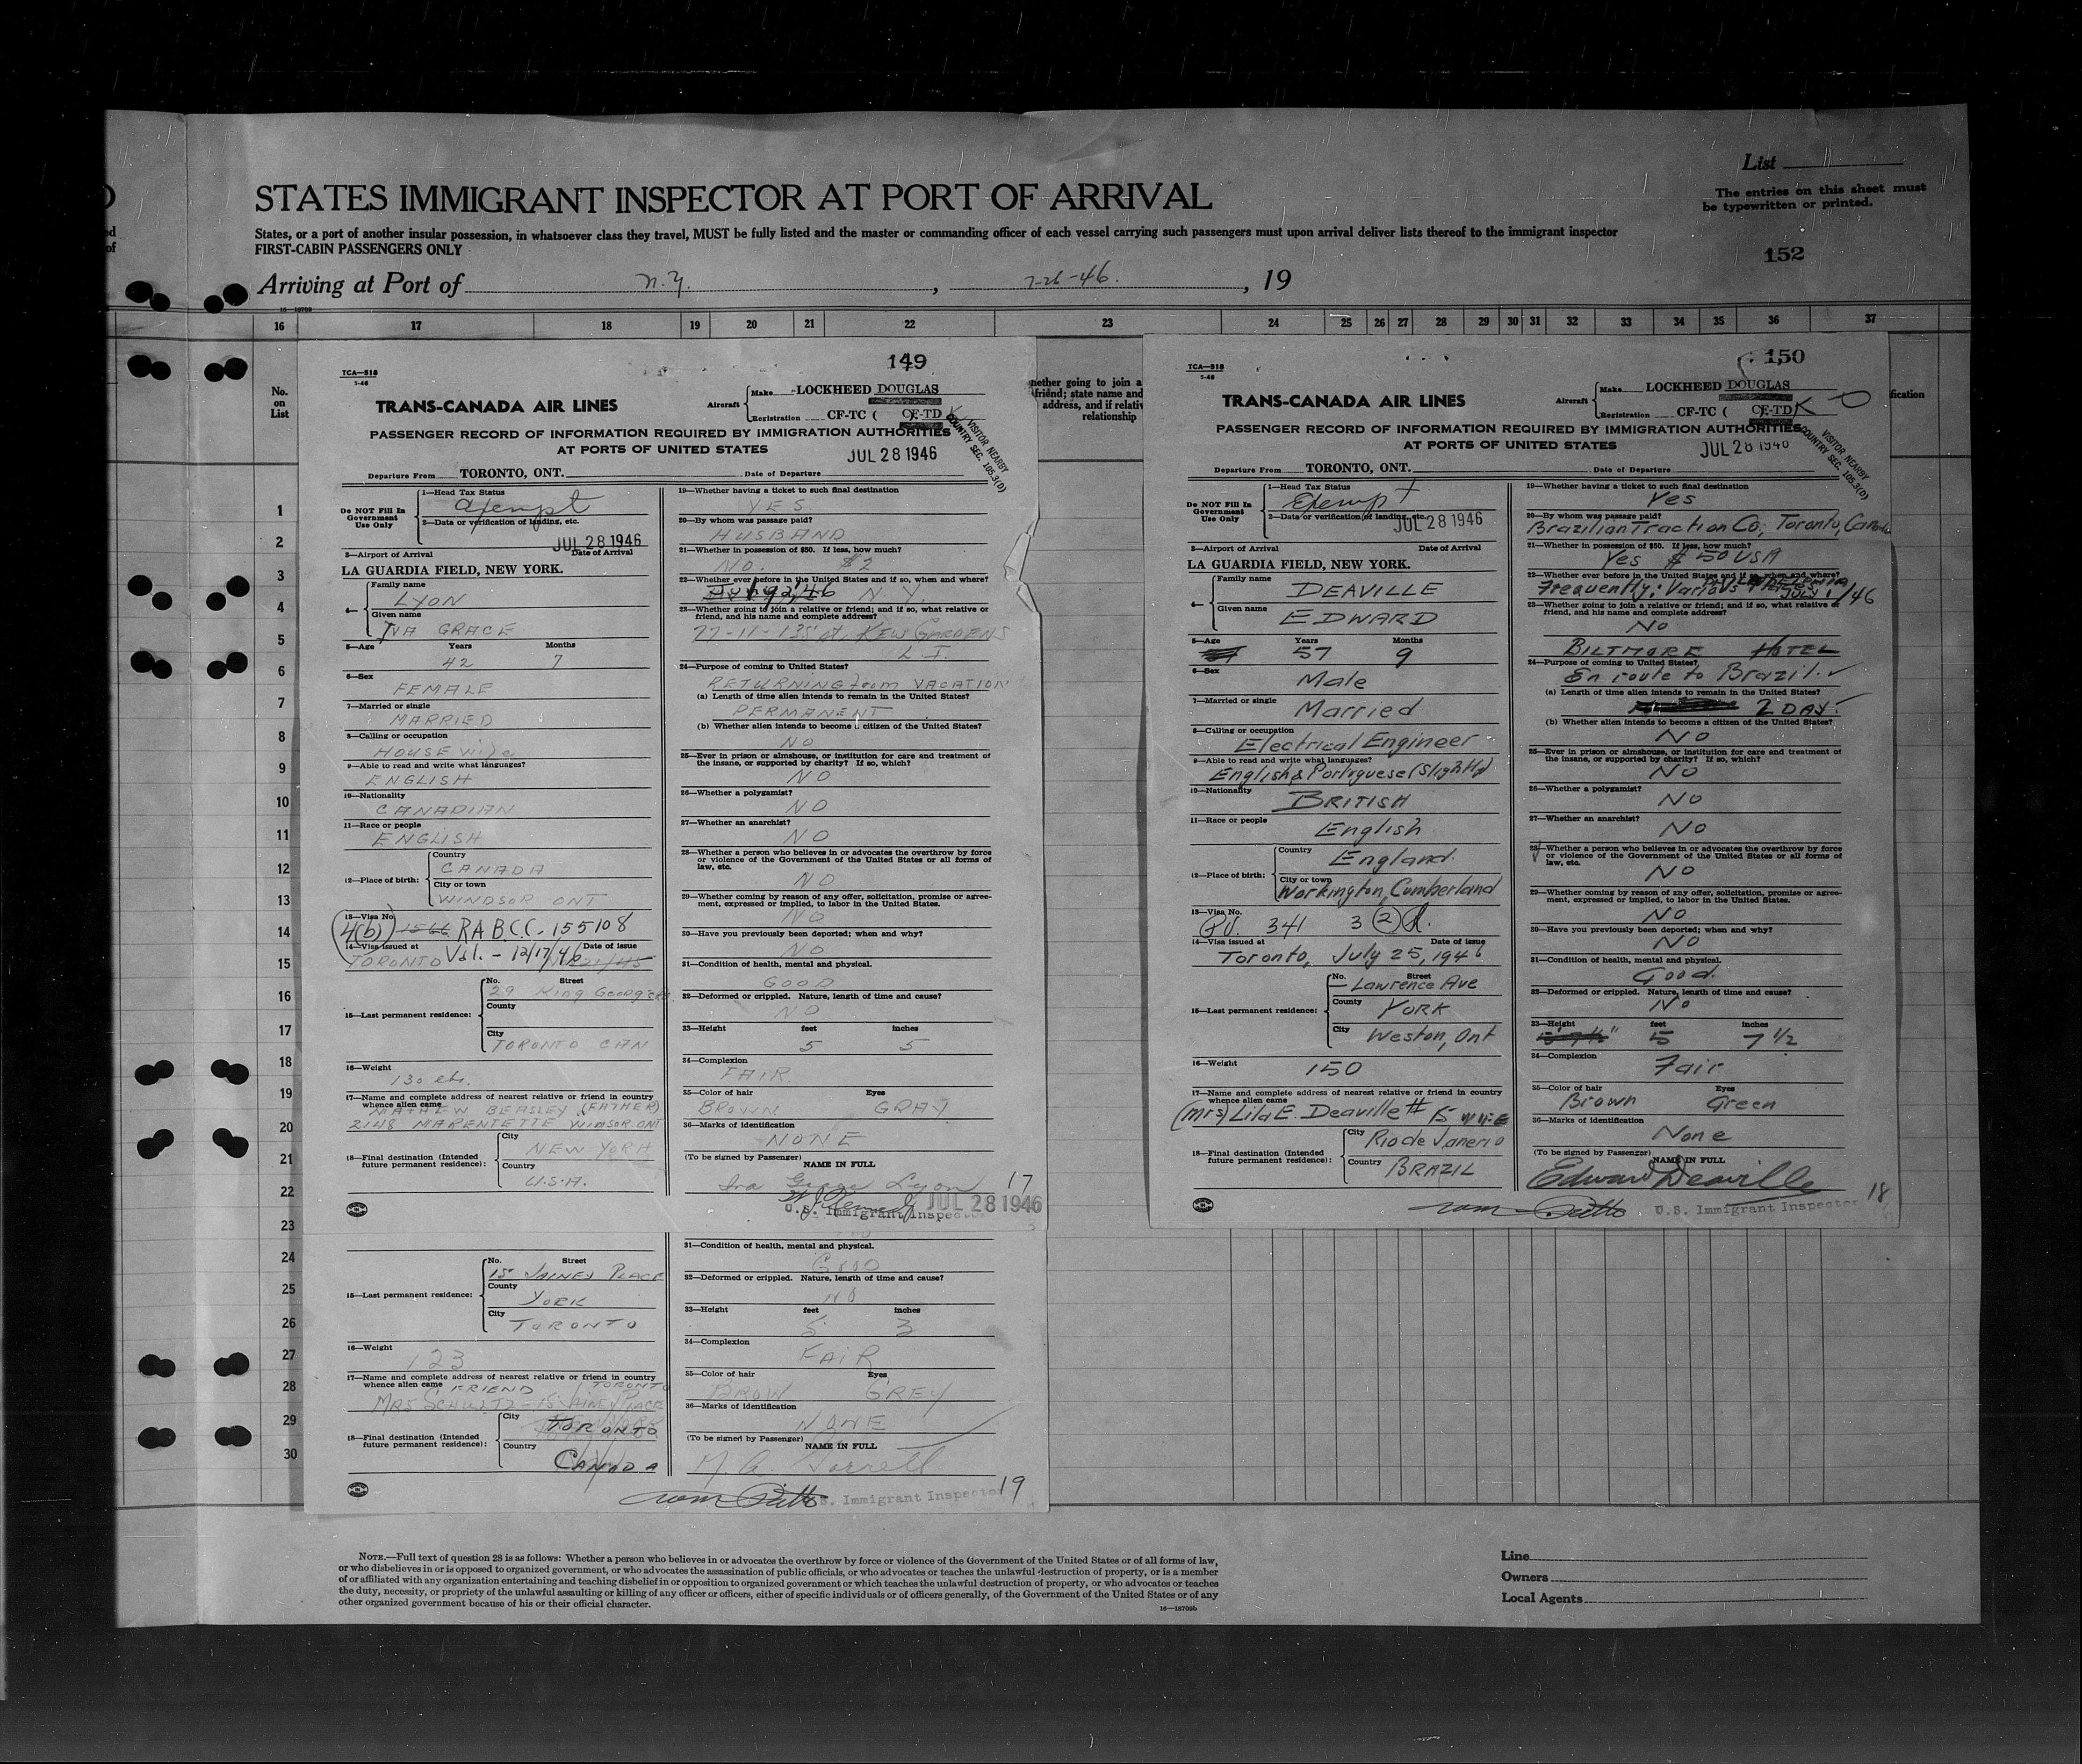 List
The entries on this sheet must
be typewritten or printed.
STATES IMMIGRANT INSPECTOR AT PORT OF ARRIVAL
States, or a port of another insular possession, in whatsoever class they travel, MUST be fully listed and the master or commanding officer of each vessel carrying such passengers must upon arrival deliver lists thereof to the immigrant inspector
FIRST-CABIN PASSENGERS ONLY
152
Arriving at Port of N.Y. , 7-26-46. , 19
16 17 18 19 20 21 22 23 24 25 26 27 28 29 30 31 32 33 34 35 36 37
No.
on
List
1
2
3
4
5
6
7
8
9
10
11
12
13
14
15
16
17
18
19
20
21
22
23
24
25
26
27
28
29
30
149
TCA—518
5-46
TRANS-CANADA AIR LINES
Aircraft Make LOCKHEED DOUGLAS
Registration CF-TC ( CF-TD K
PASSENGER RECORD OF INFORMATION REQUIRED BY IMMIGRATION AUTHORITIES
AT PORTS OF UNITED STATES
JUL 28 1946
VISITOR NEARBY
COUNTRY SEC. 105.3(D)
Departure From TORONTO, ONT. Date of Departure
Do NOT Fill In
Government
Use Only
1—Head Tax Status
Exempt
2—Data or verification of landing, etc.
JUL 28 1946
3—Airport of Arrival Date of Arrival
LA GUARDIA FIELD, NEW YORK.
4— Family name
LYON
Given name
IVA GRACE
5—Age Years Months
42 7
6—Sex
FEMALE
7—Married or single
MARRIED
8—Calling or occupation
HOUSE wife
9—Able to read and write what languages?
ENGLISH
10—Nationality
CANADIAN
11—Race or people
ENGLISH
12—Place of birth: Country
CANADA
City or town
WINDSOR ONT
13—Visa No.
4(b) 1566 RA B.C.C. - 155108
14—Visa issued at Date of issue
TORONTO Val. - 12/17/46
15—Last permanent residence: No. Street
29 King George
County
City
TORONTO CAN
16—Weight
130 lbs.
17—Name and complete address of nearest relative or friend in country
whence alien came
MATHEW BEASLEY (FATHER)
2148 MARENTETTE WINDSOR ONT
18—Final destination (Intended
future permanent residence): City
NEW YORK
Country
U.S.A.
19—Whether having a ticket to such final destination
YES
20—By whom was passage paid?
HUSBAND
21—Whether in possession of $50. If less, how much?
NO. $2
22—Whether ever before in the United States and if so, when and where?
46 N.Y.
23—Whether going to join a relative or friend; and if so, what relative or
friend, and his name and complete address?
77-11-135 St. KEW GARDENS
L.I.
24—Purpose of coming to United States?
RETURNING from VACATION
(a) Length of time alien intends to remain in the United States?
PERMANENT
(b) Whether alien intends to become a citizen of the United States?
NO
25—Ever in prison or almshouse, or institution for care and treatment of
the insane, or supported by charity? If so, which?
NO
26—Whether a polygamist?
NO
27—Whether an anarchist?
NO
28—Whether a person who believes in or advocates the overthrow by force
or violence of the Government of the United States or all forms of
law, etc.
NO
29—Whether coming by reason of any offer, solicitation, promise or agree-
ment, expressed or implied, to labor in the United States.
NO
30—Have you previously been deported; when and why?
NO
31—Condition of health, mental and physical.
GOOD
32—Deformed or crippled. Nature, length of time and cause?
NO
33—Height feet inches
5 5
34—Complexion
FAIR
35—Color of hair Eyes
BROWN GRAY
36—Marks of identification
NONE
(To be signed by Passenger) NAME IN FULL
Iva Grace Lyon 17
JUL 28 1946
U.S. Immigrant Inspector
15—Last permanent residence: No. Street
15 JAINEY PLACE
County
YORK
City
TORONTO
16—Weight
123
17—Name and complete address of nearest relative or friend in country
whence alien came FRIEND TORONTO
MRS SCHULTZ - 15 JAINEY PLACE
18—Final destination (Intended
future permanent residence): City
TORONTO
Country
CANADA
31—Condition of health, mental and physical.
GOOD
32—Deformed or crippled. Nature, length of time and cause?
NO
33—Height feet inches
5 3
34—Complexion
FAIR
35—Color of hair Eyes
BROWN GREY
36—Marks of identification
NONE
(To be signed by Passenger) NAME IN FULL
U.S. Immigrant Inspector 19
whether going to join a
friend; state name and
address, and if relative
relationship
150
TCA—518
5-46
TRANS-CANADA AIR LINES
Aircraft Make LOCKHEED DOUGLAS
Registration CF-TC ( CF-TD K
PASSENGER RECORD OF INFORMATION REQUIRED BY IMMIGRATION AUTHORITIES
AT PORTS OF UNITED STATES
JUL 28 1946
VISITOR NEARBY
COUNTRY SEC. 105.3(D)
Departure From TORONTO, ONT. Date of Departure
Do NOT Fill In
Government
Use Only
1—Head Tax Status
Exempt
2—Data or verification of landing, etc.
JUL 28 1946
3—Airport of Arrival Date of Arrival
LA GUARDIA FIELD, NEW YORK.
4— Family name
DEAVILLE
Given name
EDWARD
5—Age Years Months
57 9
6—Sex
Male
7—Married or single
Married
8—Calling or occupation
Electrical Engineer
9—Able to read and write what languages?
English & Portuguese (Slightly)
10—Nationality
BRITISH
11—Race or people
English
12—Place of birth: Country
England.
City or town
Workington, Cumberland
13—Visa No.
341 3 (2)
14—Visa issued at Date of issue
Toronto, July 25, 1946
15—Last permanent residence: No. Street
— Lawrence Ave
County
YORK
City
Weston, Ont
16—Weight
150
17—Name and complete address of nearest relative or friend in country
whence alien came
(Mrs) Lila E. Deaville # 15 WIFE
18—Final destination (Intended
future permanent residence): City
Rio de Janerio
Country
BRAZIL
19—Whether having a ticket to such final destination
Yes
20—By whom was passage paid?
Brazilian Traction Co; Toronto, Canada
21—Whether in possession of $50. If less, how much?
Yes $50 USA
22—Whether ever before in the United States and if so, when and where?
Frequently: Various JULY 1/46
23—Whether going to join a relative or friend; and if so, what relative or
friend, and his name and complete address?
No
BILTMORE HOTEL
24—Purpose of coming to United States?
En route to Brazil.
(a) Length of time alien intends to remain in the United States?
2 DAY.
(b) Whether alien intends to become a citizen of the United States?
No
25—Ever in prison or almshouse, or institution for care and treatment of
the insane, or supported by charity? If so, which?
No
26—Whether a polygamist?
No
27—Whether an anarchist?
No
28—Whether a person who believes in or advocates the overthrow by force
or violence of the Government of the United States or all forms of
law, etc.
No
29—Whether coming by reason of any offer, solicitation, promise or agree-
ment, expressed or implied, to labor in the United States.
No
30—Have you previously been deported; when and why?
No
31—Condition of health, mental and physical.
Good.
32—Deformed or crippled. Nature, length of time and cause?
No
33—Height feet inches
5 7 1/2
34—Complexion
Fair
35—Color of hair Eyes
Brown Green
36—Marks of identification
None
(To be signed by Passenger) NAME IN FULL
Edward Deaville 18
U.S. Immigrant Inspector
NOTE.—Full text of question 28 is as follows: Whether a person who believes in or advocates the overthrow by force or violence of the Government of the United States or of all forms of law,
or who disbelieves in or is opposed to organized government, or who advocates the assassination of public officials, or who advocates or teaches the unlawful destruction of property, or is a member
of or affiliated with any organization entertaining and teaching disbelief in or opposition to organized government or which teaches the unlawful destruction of property, or who advocates or teaches
the duty, necessity, or propriety of the unlawful assaulting or killing of any officer or officers, either of specific individuals or of officers generally, of the Government of the United States or of any
other organized government because of his or their official character.
16—18709b
Line
Owners
Local Agents